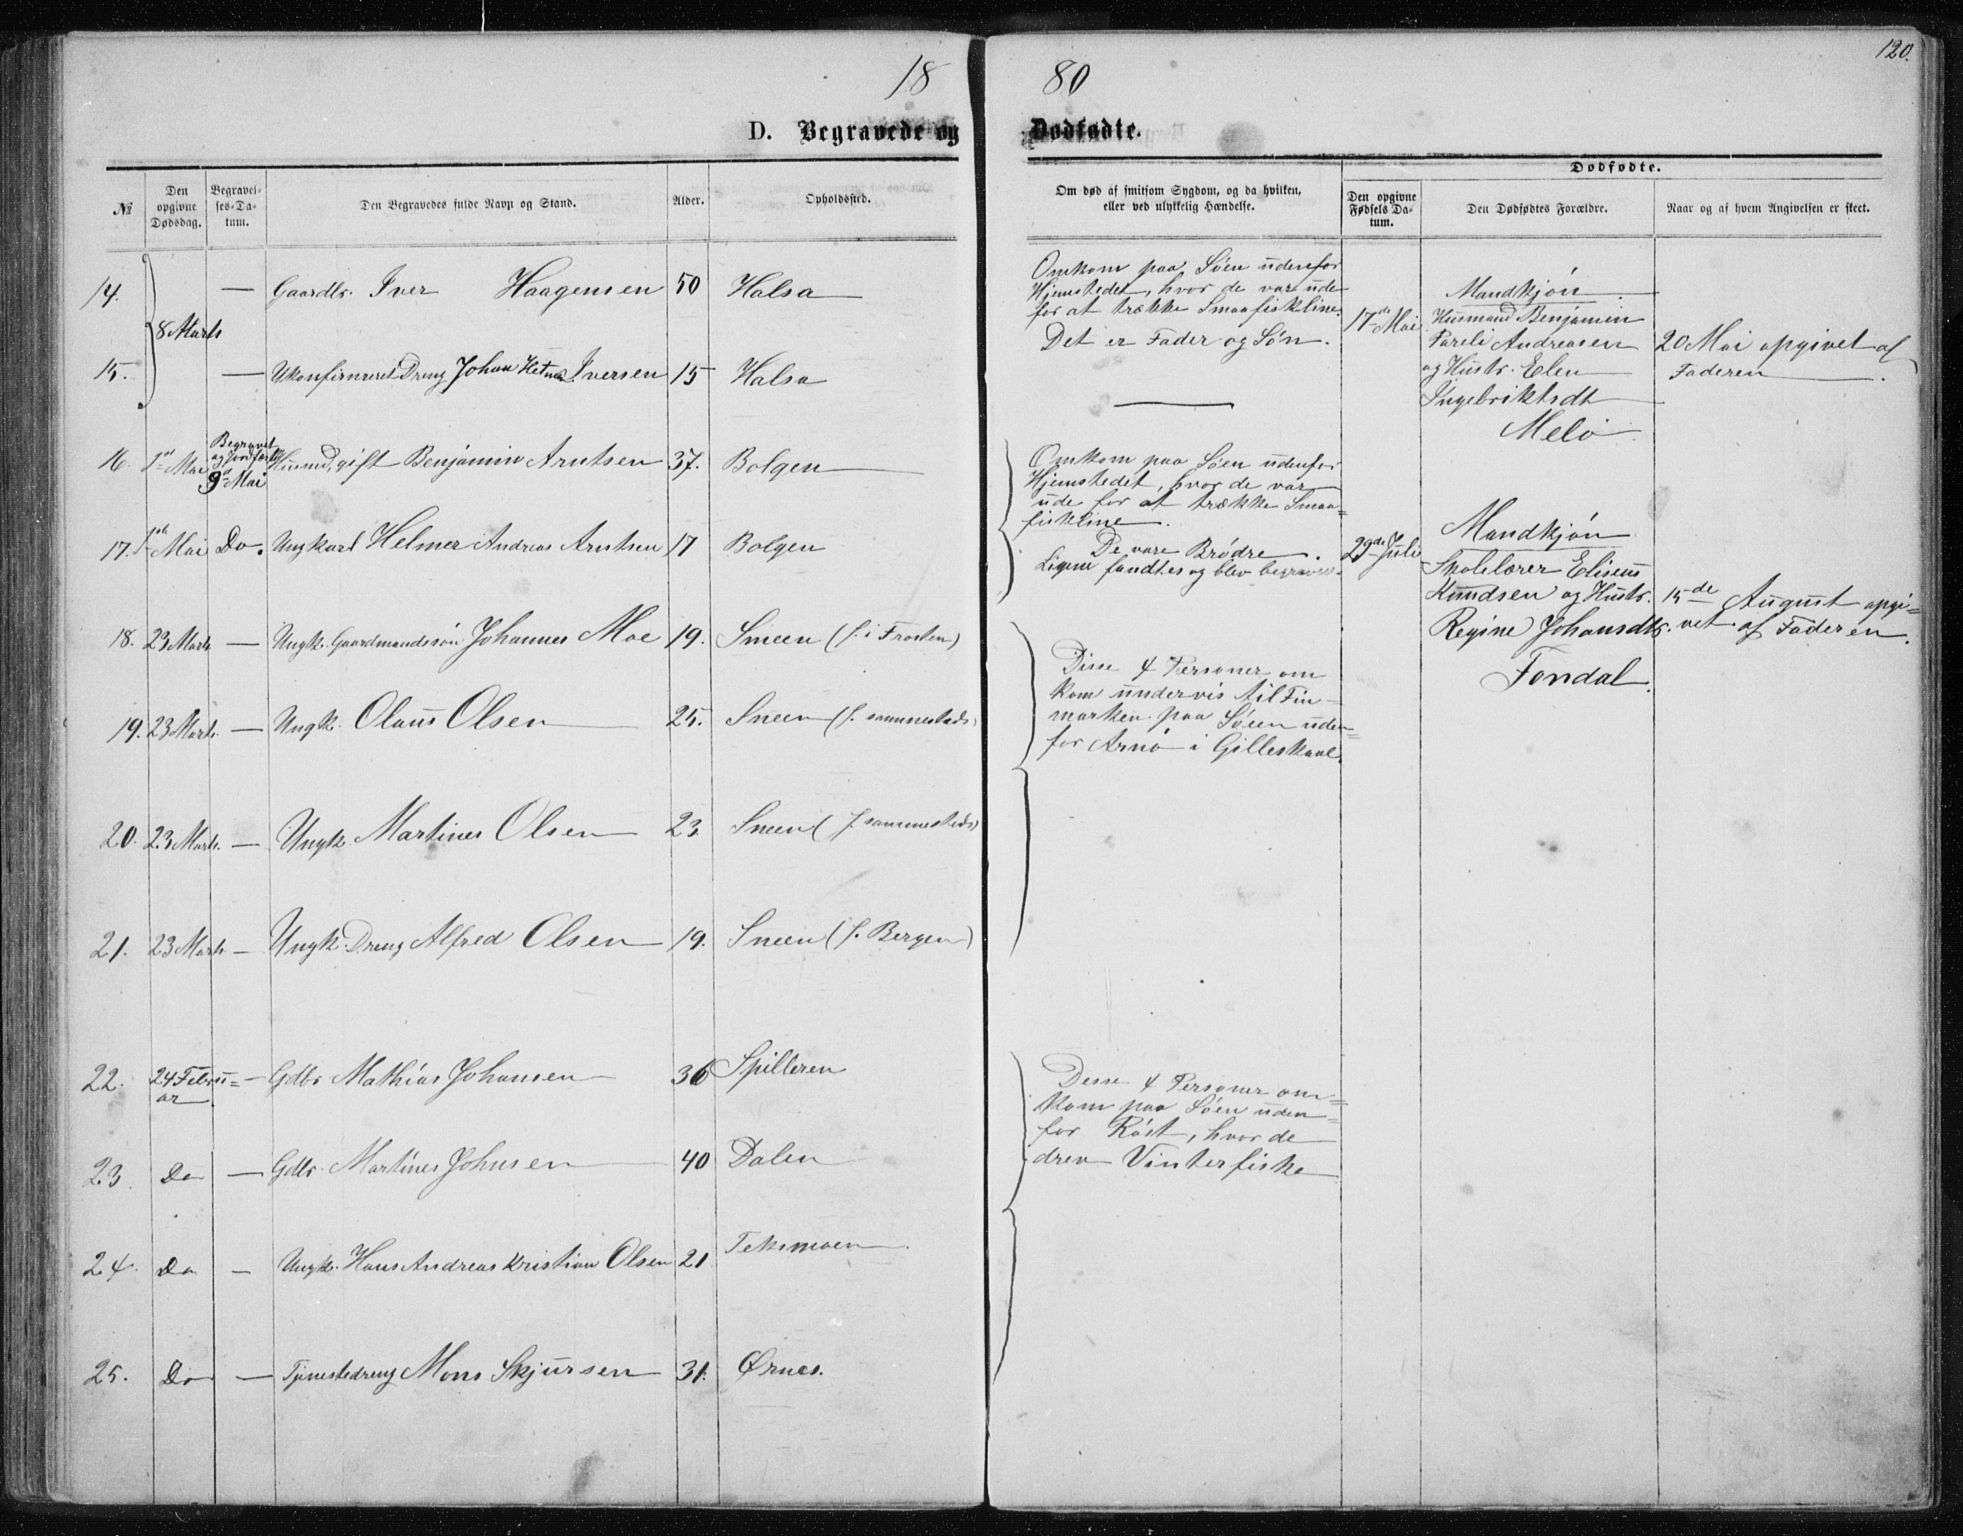 120.
18 80
D. Begravede og Dødfødte.
№
Den opgivne Dødsdag.
Begravelses-Datum.
Den Begravedes fulde Navn og Stand.
Alder.
Opholdssted.
Om død af smitsom Sygdom, og da hvilken,
eller ved ulykkelig Hændelse.
Dødfødte.
Den opgivne Fødsels Datum.
Den Dødfødtes Forældre.
Naar og af hvem Angivelsen er skeet.
14. 8 Marts — Gaardbr. Iver Haagensen 50 Halsa
15. — Ukonfirmeret Dreng Johan Iversen 15 Halsa
Omkom paa Søen udenfor
Hjemstedet, hvor de var ude
for at trække Smaafiskline.
Det er Fader og Søn.
16. 1st Mai Begravet og Jordfæst 9de Mai Husmd, gift Benjamin Arntsen 37. Bolgen
17. 1st Mai Do. Ungkarl Helmer Andreas Arntsen 17 Bolgen
Omkom paa Søen udenfor
Hjemstedet, hvor de var
ude for at trække Smaa=
fiskline.
De vare Brødre.
Ligene fandtes og blev begravet.
18. 23 Marts — Ungk. Gaardmandssøn Johannes Moe 19. Sneen (f. i Frosten)
19. 23 Marts. — Ungk. Olaus Olsen 25. Sneen (f. sammesteds)
20. 23 Marts. — Ungk. Martines Olsen 23. Sneen (f. sammesteds)
21. 23 Marts — Ungk. Dreng Alfred Olsen 19. Sneen (f. Bergen)
Disse 4 Personer om
kom undervis til Fin-
marken paa Søen uden=
for Arnø i Gilleskaal.
22. 24 Febru=ar — Gdbr Mathias Johansen 36 Spilderen
23. Do — Gdbr. Martines Johnsen 40 Dalen
24. Do — Ungk. Hans Andreas Kristian Olsen 21 Teksmoen
25. Do — Tjenestedreng Mons Skjursen 31. Ørnes.
Desse 4 Personer om=
kom paa Søen uden=
for Røst, hvor de
drev Vinterfiske
17de Mai
Mandkjøn
Husmand Benjamin
Pareli Andreasen
og Hustr. Elen
Ingebriktsdt
Melø.
20 Mai opgivet af
Faderen.
29de Juli
Mandkjøn
Skolelærer Eliseus
Knudsen og Hustr.
Regine Johansdtr.
Fondal.
15de August opgi=
vet af Faderen.